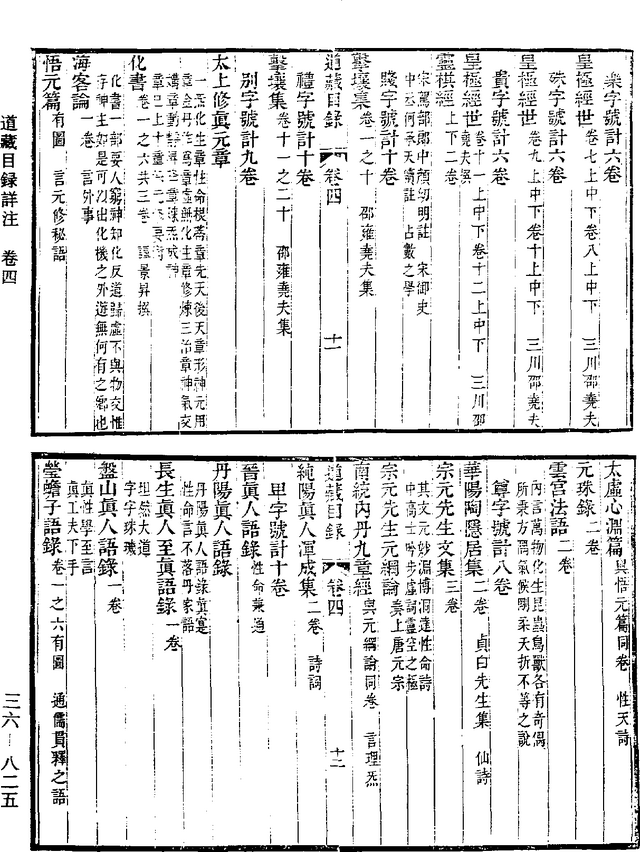 樂字號計六卷
皇極經世 卷七上中下卷八上中下 三川邵堯夫
殊字號計六卷
皇極經世 卷九上中下卷十上中下 三川邵堯夫
貴字號計六卷
皇極經世 卷十一上中下卷十二上中下 三川邵
堯夫撰
靈棋經 上下二卷
宋駕部郎中顏幼明註 宋御史
中丞何承天續註 占數之學
賤字號計十卷
擊壤集 卷一之十 邵雍堯夫集
道藏目録 卷四 十一
禮字號計十卷
擊壤集 卷十一之二十 邵雍堯夫集
別字號計九卷
太上修眞元章
化書 卷一之六共三卷 譚景昇撰
化書一部要人窮神知化反道歸虛不與物交惟
存神主如是可以出化機之外遊無何有之鄉也
海客論 一卷 言外事
悟元篇 有圖 言元修秘語
太虛心淵篇 與悟元篇同卷 性天詩
元珠錄 二卷
雲宫法語 二卷
內言萬物化生昆蟲鳥獸各有奇偶
所秉方局氣候剛柔夭折不等之說
尊字號計八卷
華陽陶隱居集 二卷 貞白先生集 仙詩
宗元先生文集 三卷
其文元妙淵博洞達性命詩
中高士吟步虛詞靈空之極
宗元先生元綱論 奏上唐元宗
南統內丹九章經 與元綱論同卷 言理炁
道藏目录 卷四 十二
純陽眞人渾成集 二卷 詩詞
卑字號計十卷
晉眞人語錄 性命兼通
丹陽眞人語錄
丹陽眞人語錄眞實
性命言不落丹家語
長生眞人至眞語錄 一卷
坦然大道
字字珠璣
盤山眞人語錄 一卷
眞性學至言
眞工夫下手
瑩蟾子語錄 卷一之六有圖 通儒貫釋之語
道藏目録詳注 卷四
三六—八二五